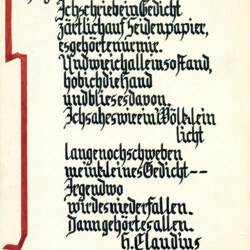 Ich schrieb ein Gedicht
zärtlich auf Seidenpapier,
es gehörte nur mir.
Und wie ich allein so stand,
hob ich die Hand
und blies es davon.
Ich sah es wie ein Wölklein
licht
lange noch schweben
mein kleines Gedicht--
Irgendwo
wird es niederfallen.
Dann gehört es allen.
H. Claudius